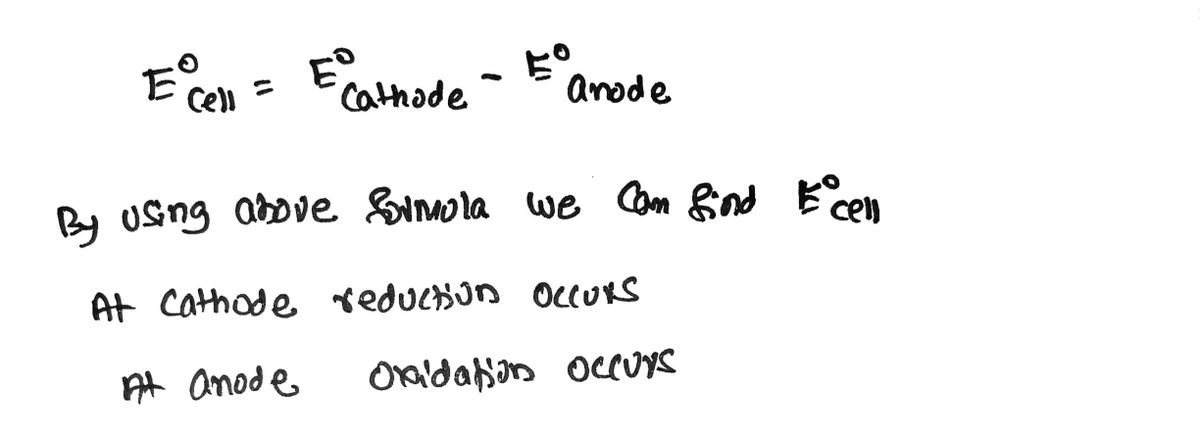 E°cell = E°Cathode - E°anode
By using above formula we can find E°cell
At Cathode reduction occurs
At anode oxidation occurs